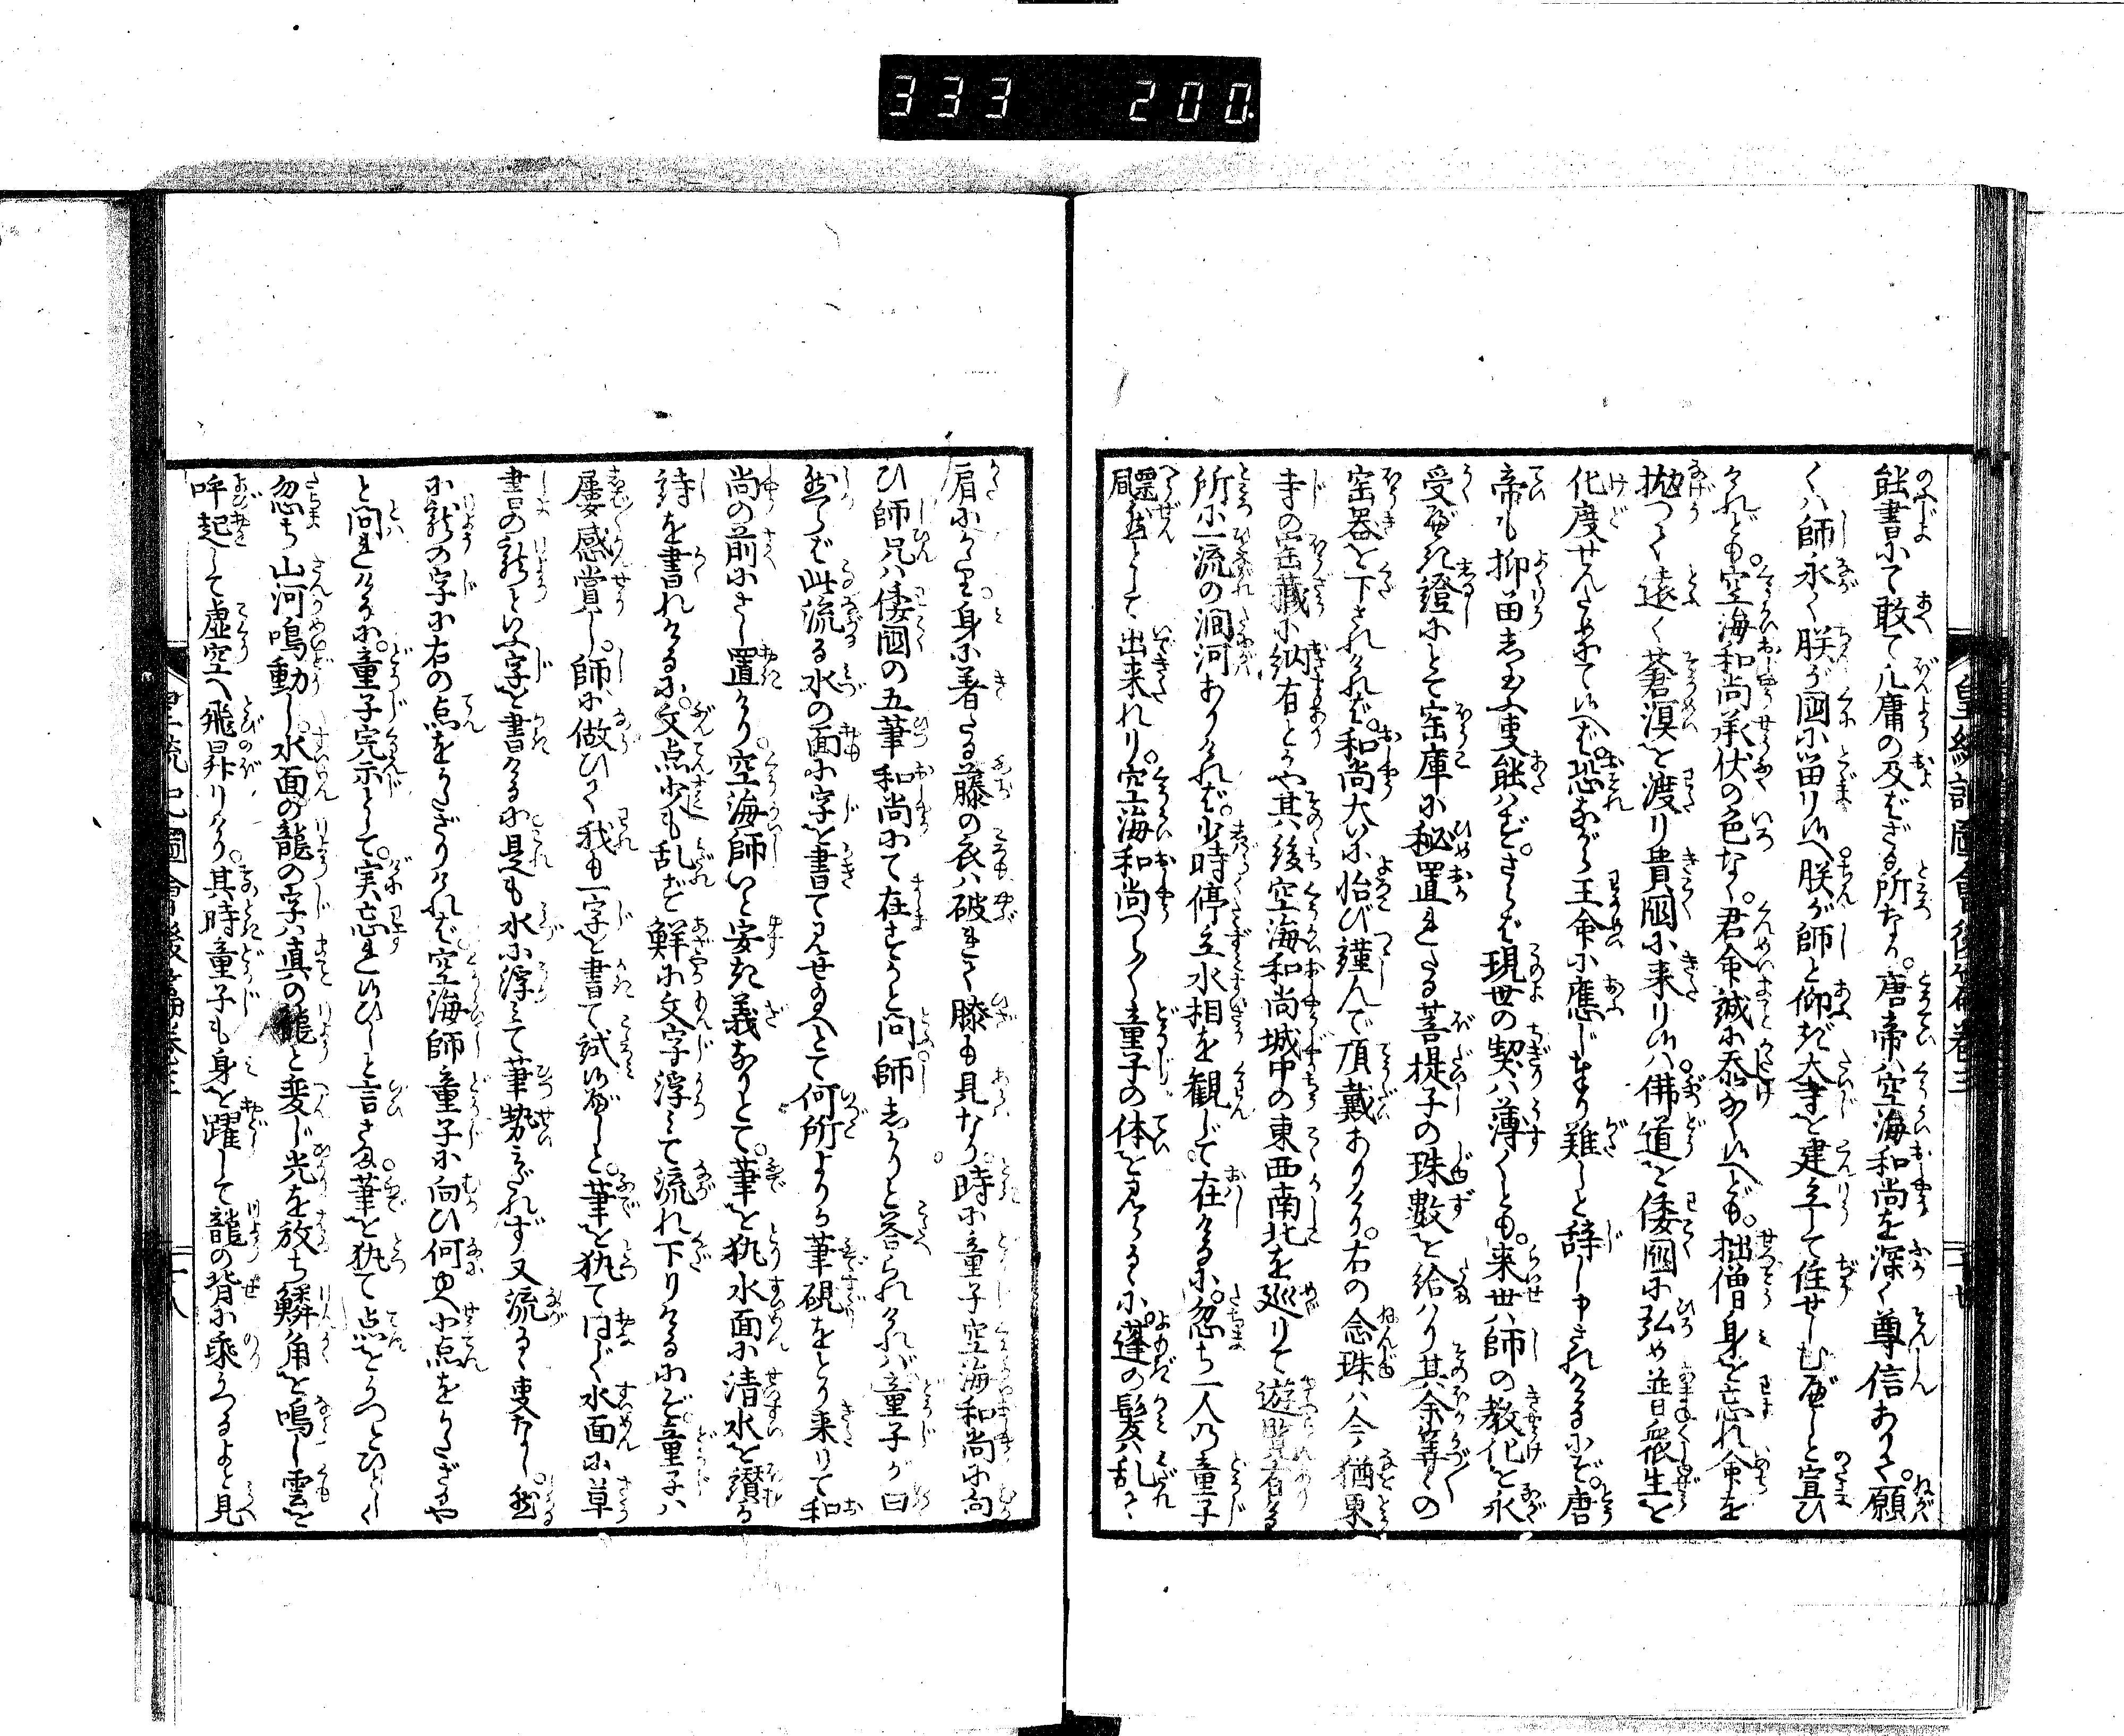 333 200.
能書にて敢て凡庸の及ばざる所なり。唐帝ハ空海和尚を深く尊信ありて。願
くハ師永く朕が國に畄り給へ。朕が師と仰ぎ大寺を建立して住せしむべしと宣ひ
けれども。空海和尚承伏の色なく。君命誠に忝なく候へども。拙僧身を忘れ命を
抛つて遠く蒼溟を渡り貴國に来り候ハ。佛道を倭國に弘め普衆生を
化度せんためにて候へば。恐ながら王命に應じまゐり難しと辞し申されけるにぞ。唐
帝も抑畄したまふ事能ハず。さらバ現世の契ハ薄くとも。来世ハ師の教化を永
受べき證にとて宝庫に秘置れたる菩提子の珠數を給ハり其余等くの
宝器を下されけれバ。和尚大いに怡び謹んで頂戴ありけり。右の念珠ハ今猶東
寺の宝藏に納有とかや其後空海和尚城中の東西南北を廻りて遊覧有る
所に一流の澗河ありけれバ。少時停立水相を観じて在けるに。忽ち一人の童子
飃然として出来れり。空海和尚つらつら童子の体を見らるゝに。蓬の髪ハ乱て
肩にかゝり身に著たる藤の衣ハ破れて膝も見なり。時に童子空海和尚に向
ひ師兄ハ倭國の五筆和尚にて在すかと問。師しかりと答られけれバ童子が曰
然らバ此流る水の面に字を書て見せ給へとて何所よりか筆硯をとり来りて和
尚の前にさし置けり。空海師いと安き義なりとて。筆を執水面に清水を讃る
詩を書れけるに。文点少も乱ず鮮に文字浮みて流れ下りけるにぞ。童子ハ
屡感賞し。師に做ひて我も一字を書て試候べしと。筆を執て同じく水面に草
書の龍といふ字を書けるに是も水に浮みて筆勢みだれず又流るゝ事なし。然
に龍の字に右の点をうたざりけれバ。空海師童子に向ひ何ゆへに点をうたざるや
と問れけるに。童子完示として。実忘れ候ひしと言さま。筆を執て点をうつとひとしく
忽ち山河鳴動し。水面の龍の字ハ真の龍と変じ光を放ち鱗角を鳴し雲を
呼起して虚空へ飛昇りけり。其時童子も身を躍して龍の背に乗うつるよと見